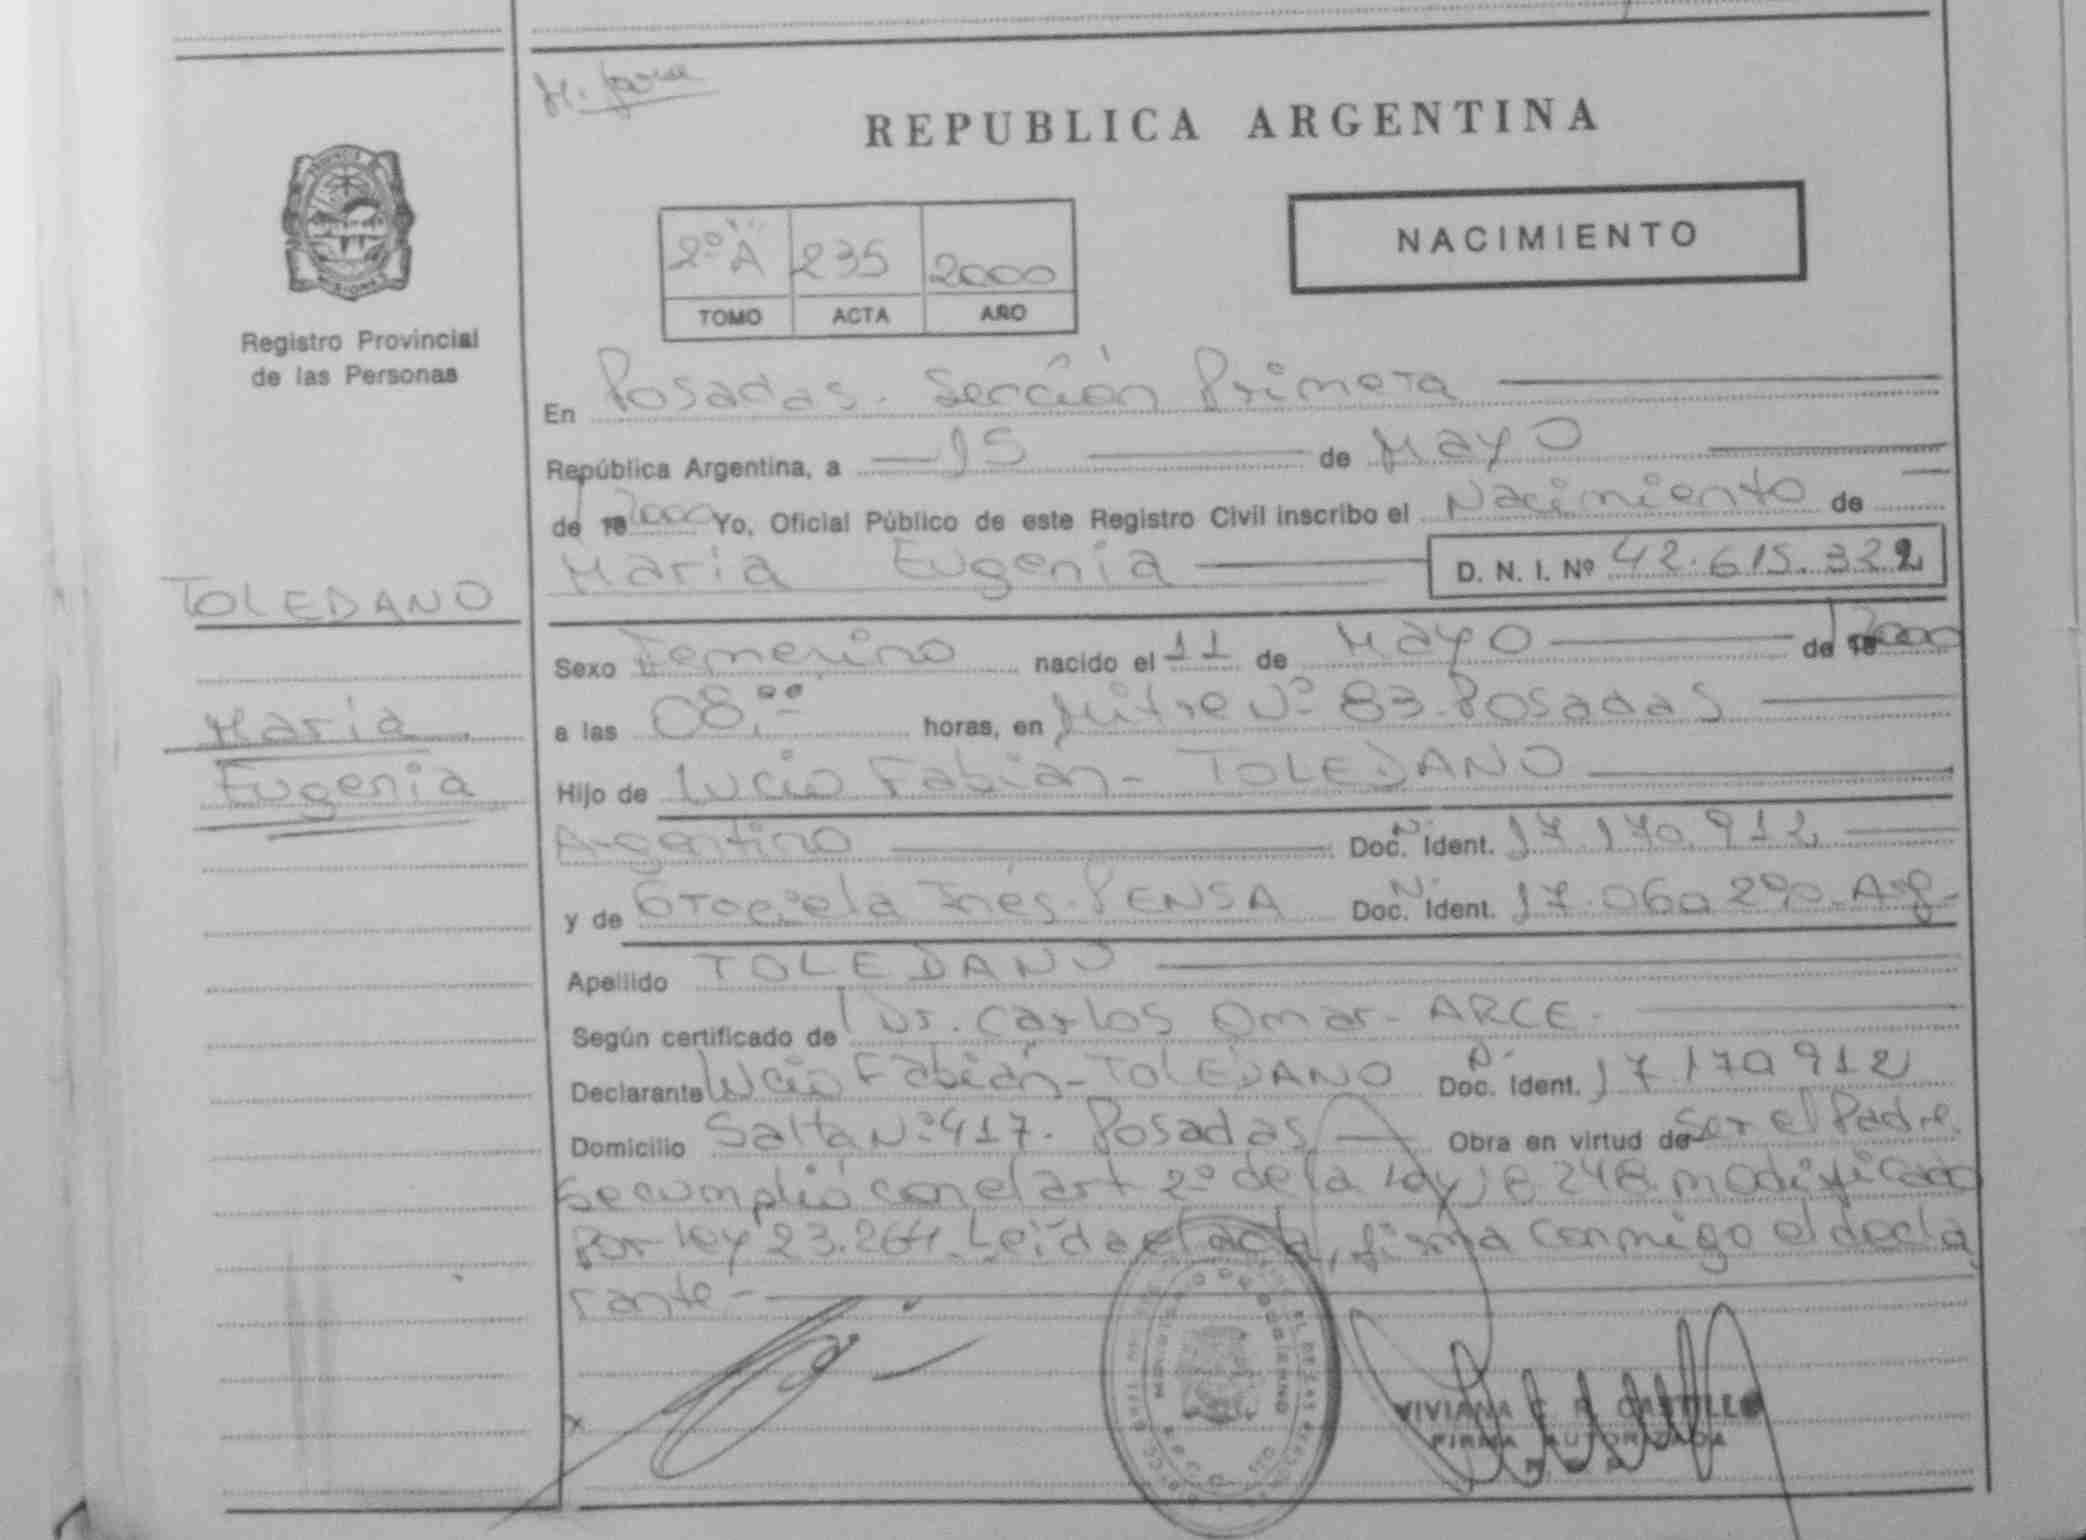 REPUBLICA ARGENTINA
NACIMIENTO
2º A 235 2000
TOMO ACTA AÑO
Registro Provincial
de las Personas
En Posadas. Sección Primera
República Argentina, a 15 de Mayo
de 19 2000 Yo, Oficial Público de este Registro Civil inscribo el Nacimiento de
Maria Eugenia D. N. I. Nº 42.615.322
TOLEDANO
Maria
Eugenia
Sexo Femenino nacido el 11 de Mayo de 19 2000
a las 08.00 horas, en Mitre Nº 83. Posadas
Hijo de Lucio Fabián - TOLEDANO
Argentino Doc. Ident. 17.170.912
y de Graciela Inés. PENSA Doc. Ident. 17.060.290. Arg.
Apellido TOLEDANO
Según certificado de Dr. Carlos Omar - ARCE.
Declarante Lucio Fabián - TOLEDANO Doc. Ident. 17.170.912
Domicilio Salta Nº 417. Posadas Obra en virtud de Ser el Padre.
Se cumplió con el art 2º de la Ley 18.248 modificado
Por ley 23.264. Leída el acta, firma conmigo el decla
rante -
VIVIANA C. R. CASTILLO
FIRMA AUTORIZADA